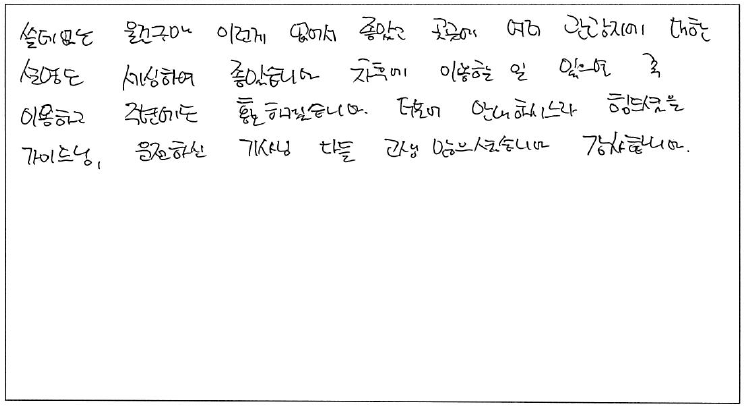 쓸데없는 물건구매 이런게 없어서 좋았고 곳곳에 여러 관광지에 대한
설명도 세심하여 좋았습니다 차후에 이용할 일 있으면 꼭
이용하고 주변에도 홍보하겠습니다. 더불어 안내하시느라 힘드셨을
가이드님, 운전하신 기사님 다들 고생 많으셨습니다 감사합니다.